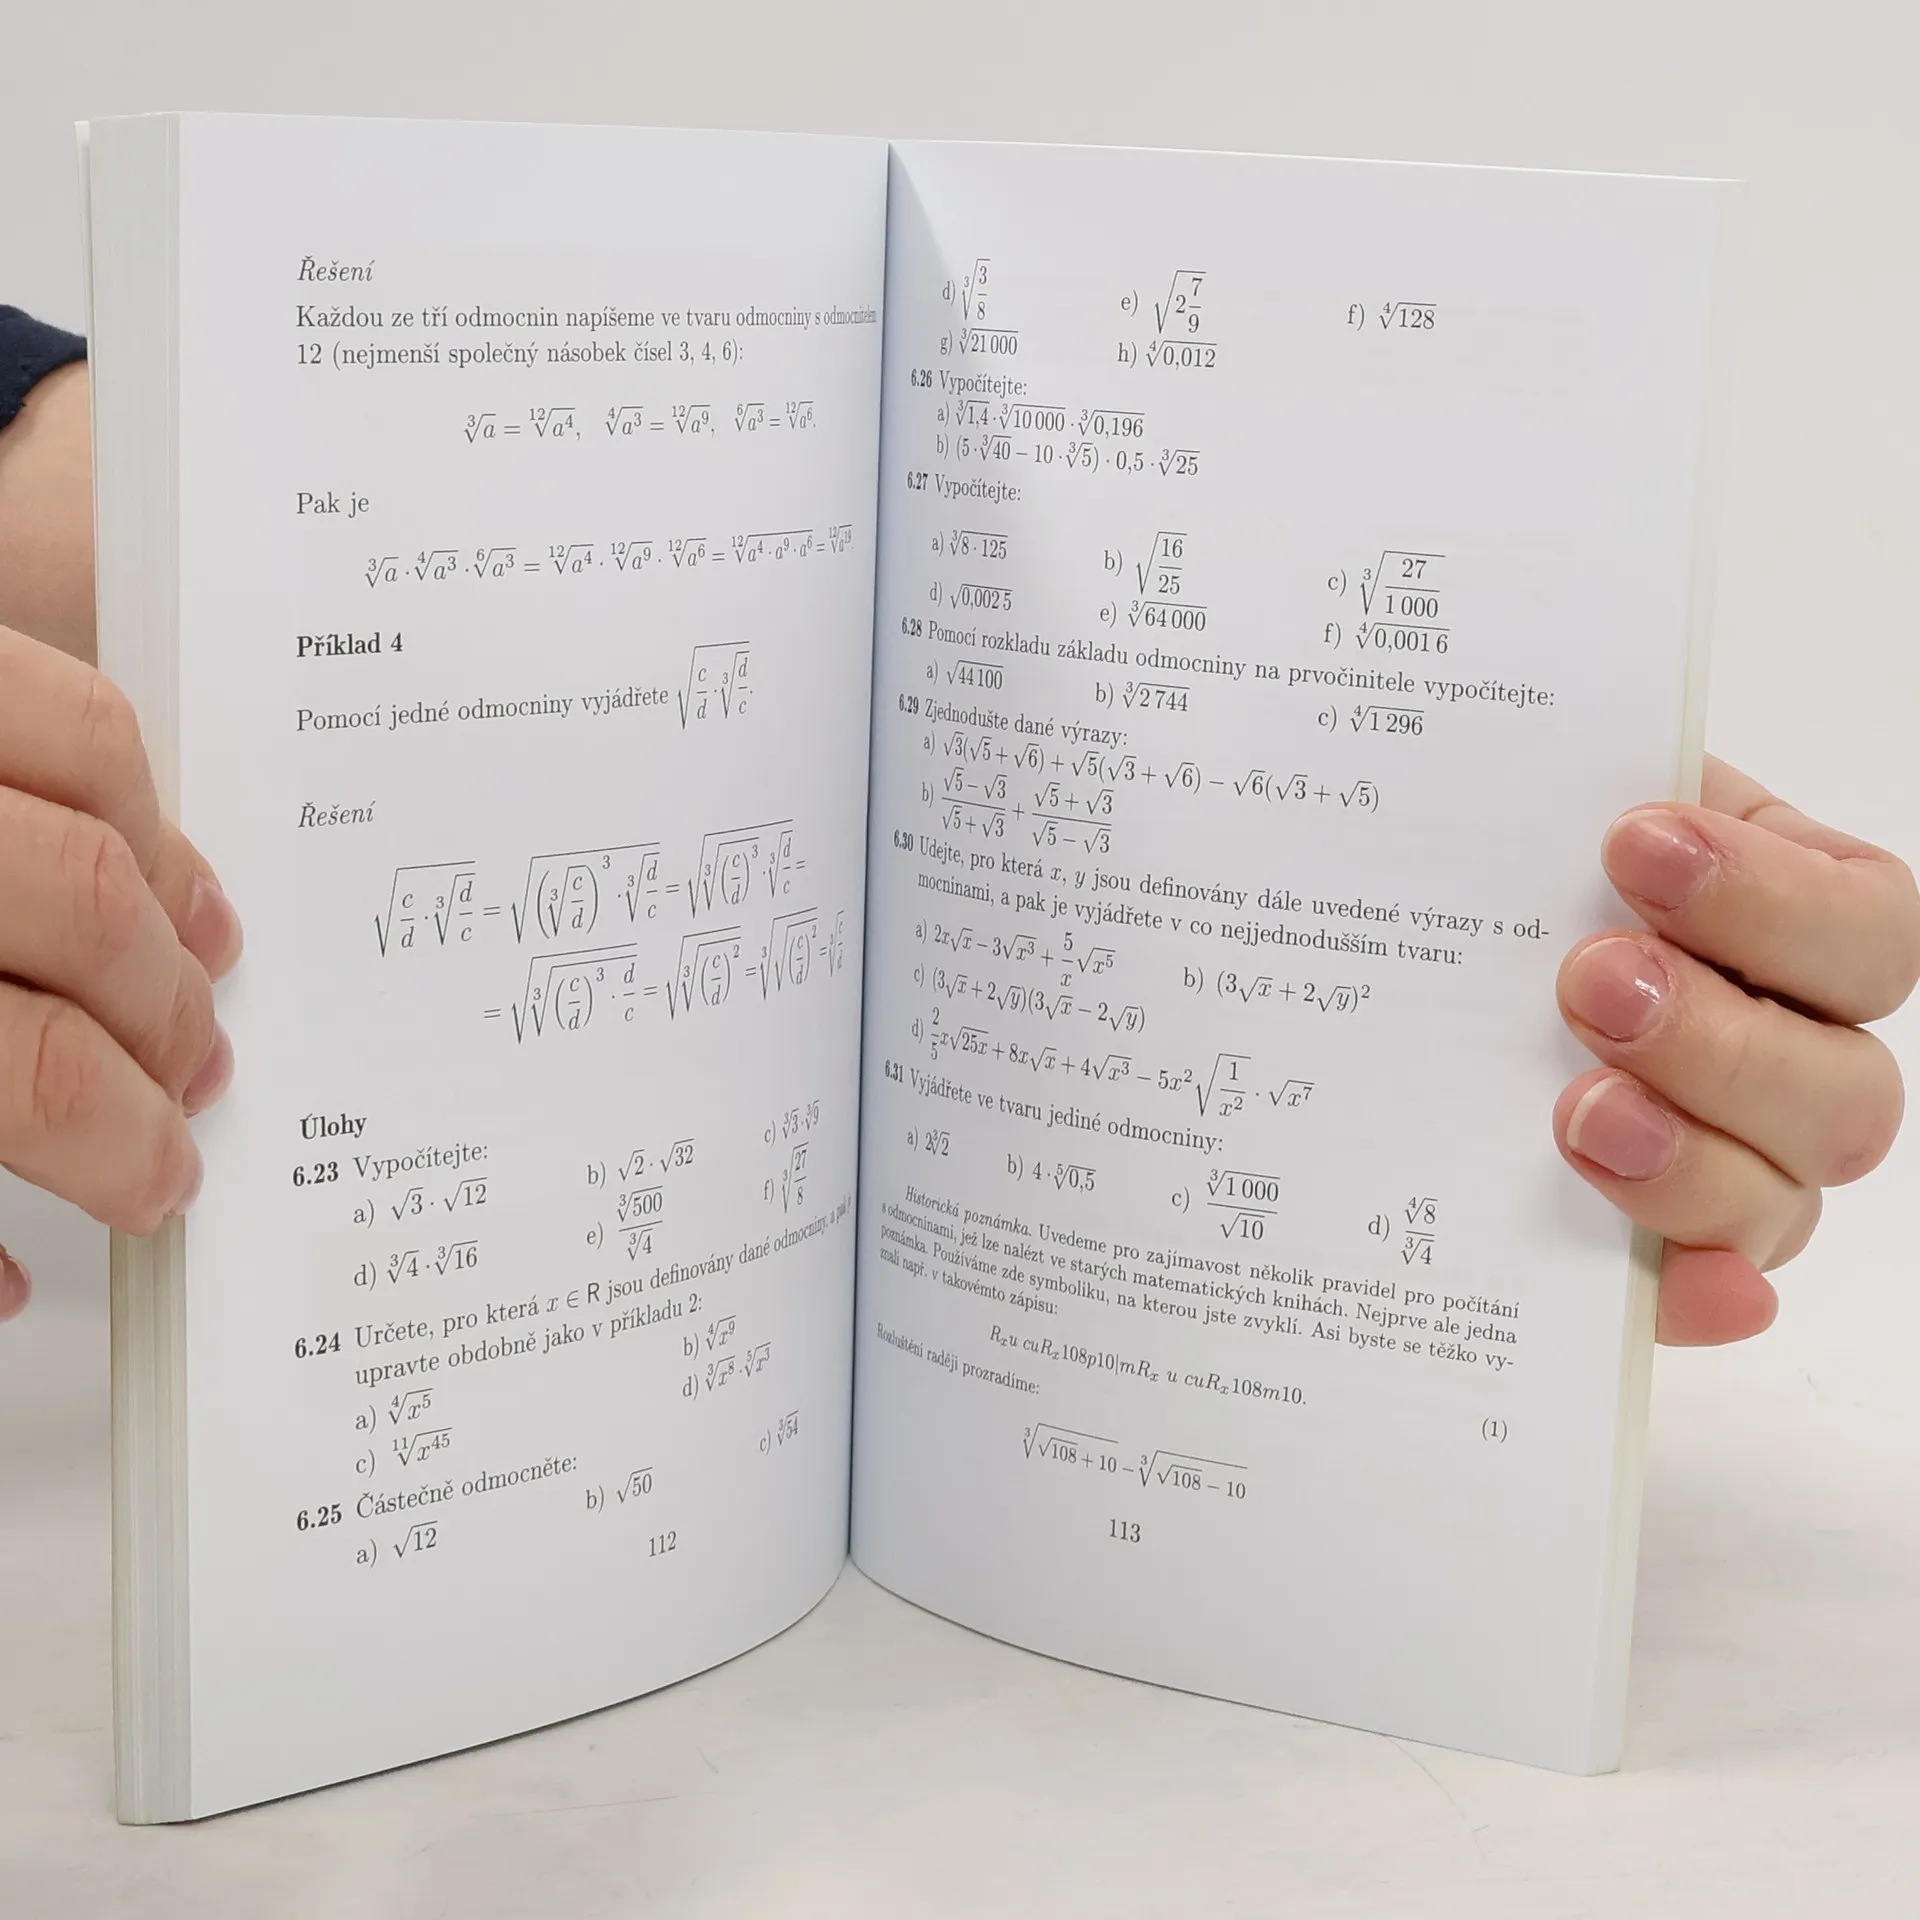 Řešení
Každou ze tří odmocnin napíšeme ve tvaru odmocniny s odmocnitelem
12 (nejmenší společný násobek čísel 3, 4, 6):
∛a = ¹²√a⁴, ⁴√a³ = ¹²√a⁹, ⁶√a³ = ¹²√a⁶.
Pak je
∛a · ⁴√a³ · ⁶√a³ = ¹²√a⁴ · ¹²√a⁹ · ¹²√a⁶ = ¹²√(a⁴ · a⁹ · a⁶) = ¹²√a¹⁹.
Příklad 4
Pomocí jedné odmocniny vyjádřete √(c/d · ∛(d/c)).
Řešení
√(c/d · ∛(d/c)) = √((∛(c/d))³ · ∛(d/c)) = √(∛((c/d)³) · ∛(d/c)) =
= √(∛((c/d)³ · d/c)) = √(∛((c/d)²)) = ∛(√((c/d)²)) = ∛(c/d)
Úlohy
6.23 Vypočítejte:
a) √3 · √12 b) √2 · √32 c) ∛3 · ∛9
d) ∛4 · ∛16 e) ∛500/∛4 f) ∛(27/8)
6.24 Určete, pro která x ∈ R jsou definovány dané odmocniny, a pak je
upravte obdobně jako v příkladu 2:
a) ⁴√x⁵ b) ⁴√x⁹
c) ¹¹√x⁴⁵ d) ∛x⁸ · ⁵√x³
6.25 Částečně odmocněte:
a) √12 b) √50 c) ∛54
112
d) ∛(3/8) e) √(2 7/9) f) ⁴√128
g) ∛21 000 h) ⁴√0,012
6.26 Vypočítejte:
a) ∛1,4 · ∛10 000 · ∛0,196
b) (5 · ∛40 − 10 · ∛5) · 0,5 · ∛25
6.27 Vypočítejte:
a) ∛(8 · 125) b) √(16/25) c) ∛(27/1 000)
d) √0,002 5 e) ∛64 000 f) ⁴√0,001 6
6.28 Pomocí rozkladu základu odmocniny na prvočinitele vypočítejte:
a) √44 100 b) ∛2 744 c) ⁴√1 296
6.29 Zjednodušte dané výrazy:
a) √3(√5 + √6) + √5(√3 + √6) − √6(√3 + √5)
b) (√5 − √3)/(√5 + √3) + (√5 + √3)/(√5 − √3)
6.30 Udejte, pro která x, y jsou definovány dále uvedené výrazy s od-
mocninami, a pak je vyjádřete v co nejjednodušším tvaru:
a) 2x√x − 3√x³ + 5/x √x⁵ b) (3√x + 2√y)²
c) (3√x + 2√y)(3√x − 2√y)
d) 2/5 x√25x + 8x√x + 4√x³ − 5x²√(1/x²) · √x⁷
6.31 Vyjádřete ve tvaru jediné odmocniny:
a) 2∛2 b) 4 · ⁵√0,5 c) ∛1 000/√10 d) ⁴√8/∛4
Historická poznámka. Uvedeme pro zajímavost několik pravidel pro počítání
s odmocninami, jež lze nalézt ve starých matematických knihách. Nejprve ale jedna
poznámka. Používáme zde symboliku, na kterou jste zvyklí. Asi byste se těžko vy-
znali např. v takovémto zápisu:
Rₓu cuRₓ108p10|mRₓ u cuRₓ108m10.
Rozluštění raději prozradíme:
∛(√108 + 10) − ∛(√108 − 10) (1)
113